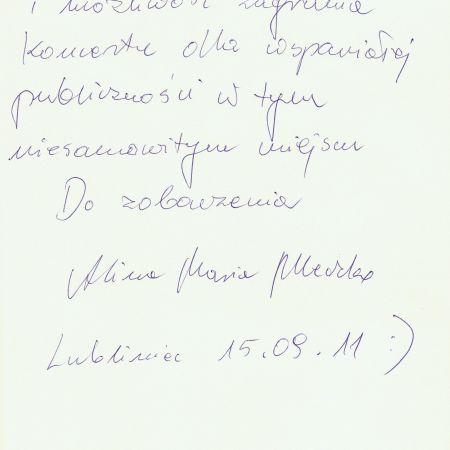 i możliwość zagrania
koncertu dla wspaniałej
publiczności w tym
niesamowitym miejscu
Do zobaczenia
Alina Maria
Lubliniec 15.09.11 :)